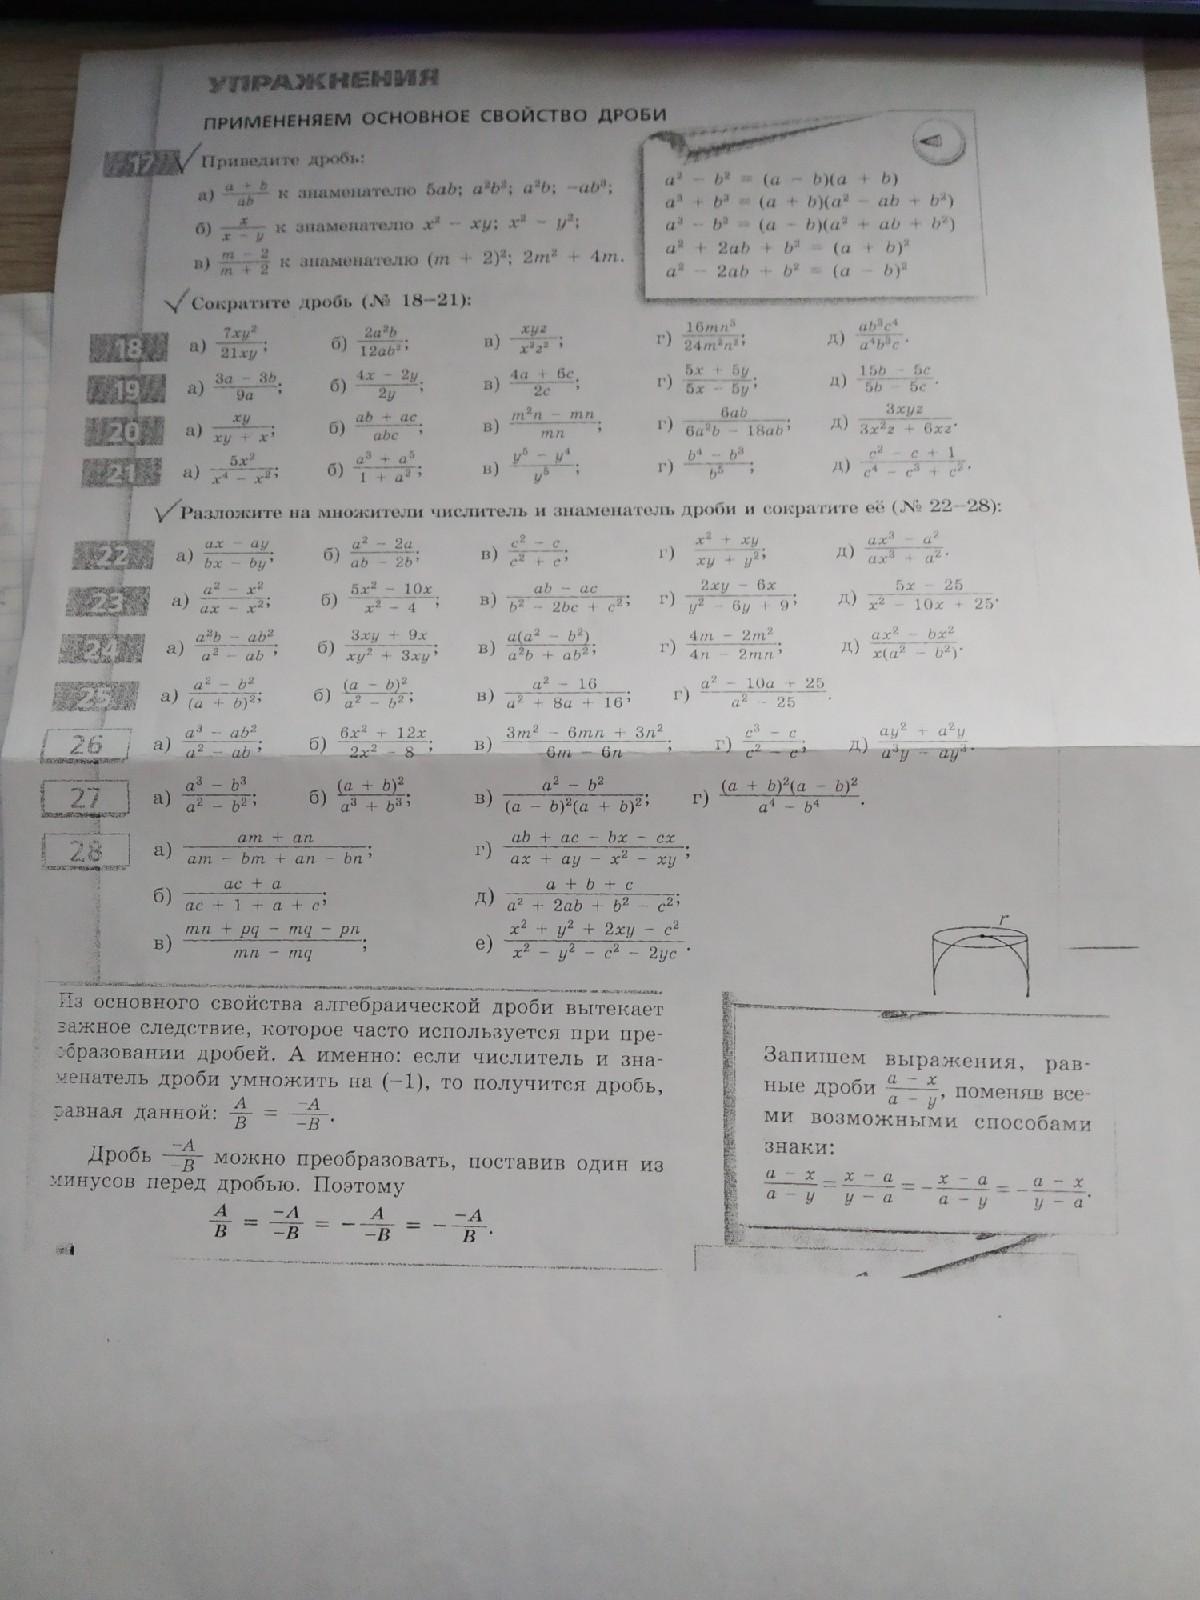 УПРАЖНЕНИЯ
ПРИМЕНЕНЯЕМ ОСНОВНОЕ СВОЙСТВО ДРОБИ
17 Приведите дробь:
а) (a + b)/(ab) к знаменателю 5ab; a²b²; a²b; −ab³;
б) x/(x − y) к знаменателю x² − xy; x² − y²;
в) (m − 2)/(m + 2) к знаменателю (m + 2)²; 2m² + 4m.
a² − b² = (a − b)(a + b)
a³ + b³ = (a + b)(a² − ab + b²)
a³ − b³ = (a − b)(a² + ab + b²)
a² + 2ab + b² = (a + b)²
a² − 2ab + b² = (a − b)²
Сократите дробь (№ 18—21):
18 а) 7xy²/21xy; б) 2a²b/12ab²; в) xyz/x²z²; г) 16mn³/24m²n²; д) ab³c⁴/a⁴b³c.
19 а) (3a − 3b)/9a; б) (4x − 2y)/2y; в) (4a + 6c)/2c; г) (5x + 5y)/(5x − 5y); д) (15b − 5c)/(5b − 5c).
20 а) xy/(xy + x); б) (ab + ac)/abc; в) (m²n − mn)/mn; г) 6ab/(6a²b − 18ab); д) 3xyz/(3x²z + 6xz).
21 а) 5x²/(x⁴ − x²); б) (a³ + a⁵)/(1 + a²); в) (y⁵ − y⁴)/y⁵; г) (b⁴ − b³)/b⁵; д) (c² − c + 1)/(c⁴ − c³ + c²).
Разложите на множители числитель и знаменатель дроби и сократите её (№ 22—28):
22 а) (ax − ay)/(bx − by); б) (a² − 2a)/(ab − 2b); в) (c² − c)/(c² + c); г) (x² + xy)/(xy + y²); д) (ax³ − a²)/(ax³ + a²).
23 а) (a² − x²)/(ax − x²); б) (5x² − 10x)/(x² − 4); в) (ab − ac)/(b² − 2bc + c²); г) (2xy − 6x)/(y² − 6y + 9); д) (5x − 25)/(x² − 10x + 25).
24 а) (a²b − ab²)/(a² − ab); б) (3xy + 9x)/(xy² + 3xy); в) a(a² − b²)/(a²b + ab²); г) (4m − 2m²)/(4n − 2mn); д) (ax² − bx²)/x(a² − b²).
25 а) (a² − b²)/(a + b)²; б) (a − b)²/(a² − b²); в) (a² − 16)/(a² + 8a + 16); г) (a² − 10a + 25)/(a² − 25).
26 а) (a³ − ab²)/(a² − ab); б) (6x² + 12x)/(2x² − 8); в) (3m² − 6mn + 3n²)/(6m − 6n); г) (c³ − c)/(c² − c); д) (ay² + a²y)/(a³y − ay³).
27 а) (a³ − b³)/(a² − b²); б) (a + b)²/(a³ + b³); в) (a² − b²)/(a − b)²(a + b)²; г) (a + b)²(a − b)²/(a⁴ − b⁴).
28 а) (am + an)/(am − bm + an − bn); г) (ab + ac − bx − cx)/(ax + ay − x² − xy);
б) (ac + a)/(ac + 1 + a + c); д) (a + b + c)/(a² + 2ab + b² − c²);
в) (mn + pq − mq − pn)/(mn − mq); е) (x² + y² + 2xy − c²)/(x² − y² − c² − 2yc).
r
Из основного свойства алгебраической дроби вытекает
важное следствие, которое часто используется при пре-
образовании дробей. А именно: если числитель и зна-
менатель дроби умножить на (−1), то получится дробь,
равная данной: A/B = −A/−B.
Дробь −A/−B можно преобразовать, поставив один из
минусов перед дробью. Поэтому
A/B = −A/−B = − A/−B = − −A/B.
Запишем выражения, рав-
ные дроби (a − x)/(a − y), поменяв все-
ми возможными способами
знаки:
(a − x)/(a − y) = (x − a)/(y − a) = −(x − a)/(a − y) = −(a − x)/(y − a).